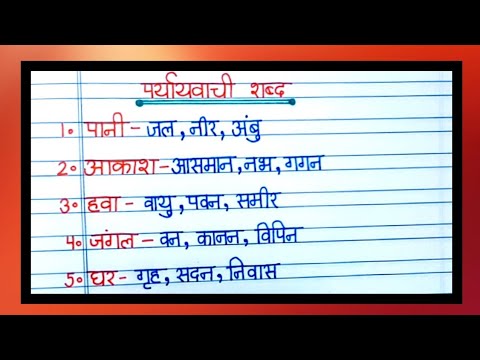 पर्यायवाची शब्द
1. पानी - जल, नीर, अंबु
2. आकाश - आसमान, नभ, गगन
3. हवा - वायु, पवन, समीर
4. जंगल - वन, कानन, विपिन
5. घर - गृह, सदन, निवास